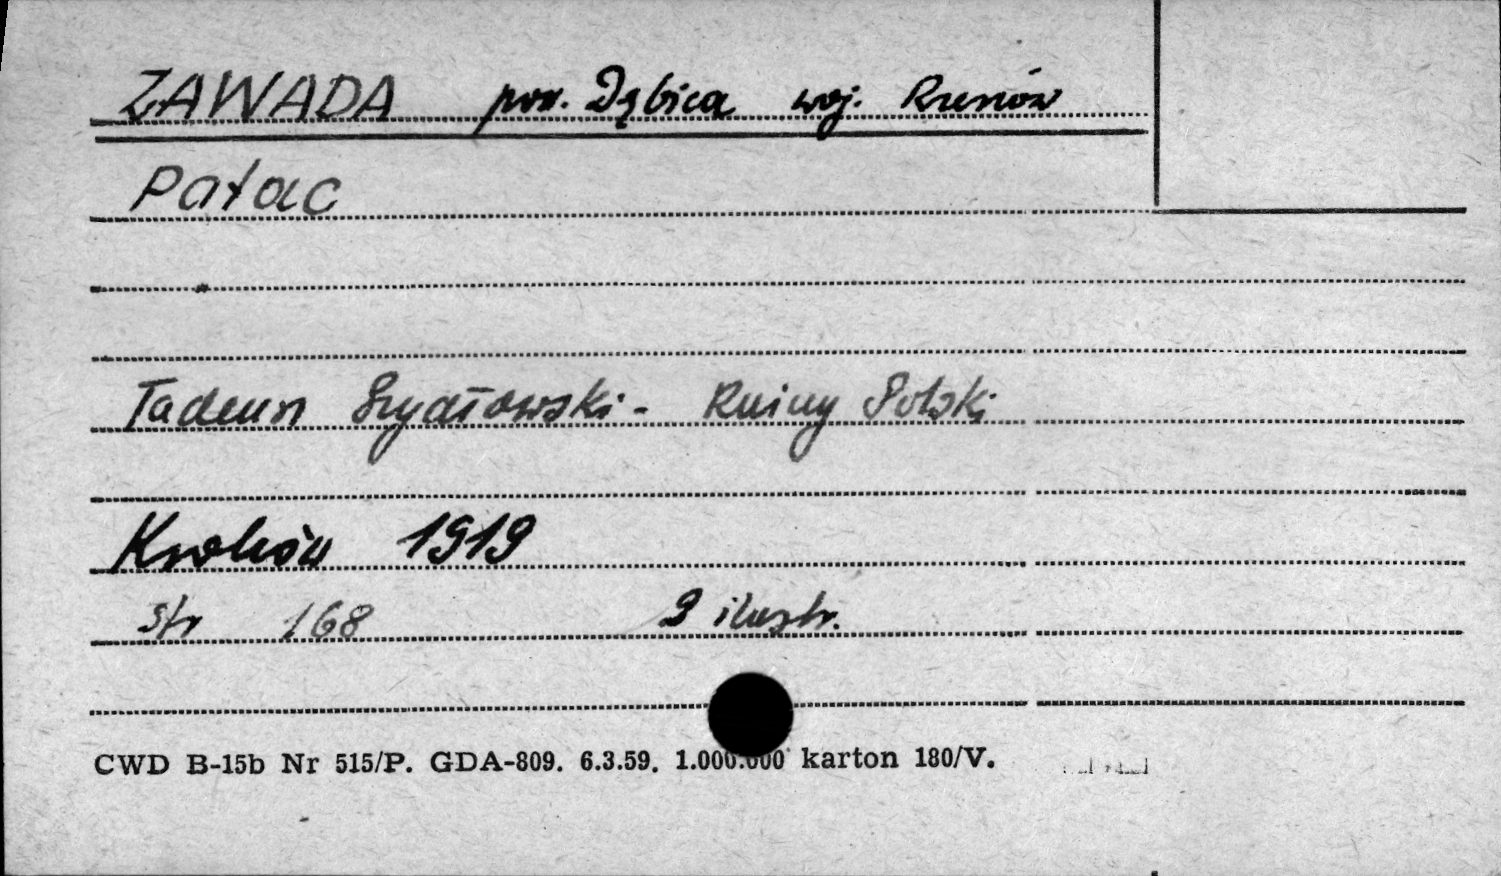 ZAWADA pow. Dębica woj. Rzeszów
Pałac
Tadeusz Szydłowski - Ruiny Polski
Kraków 1919
str 168 9 ilustr.
CWD B-15b Nr 515/P. GDA-809. 6.3.59. 1.000.000 karton 180/V.